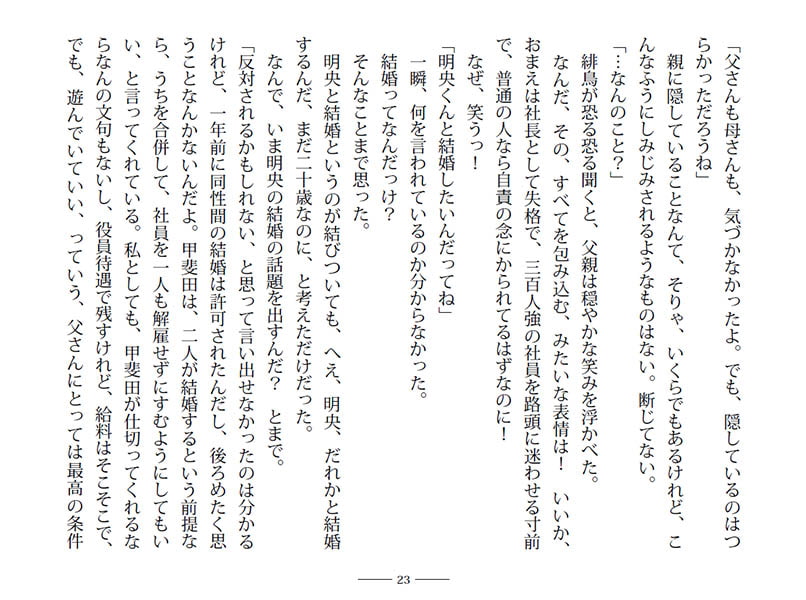 「父さんも母さんも、気づかなかったよ。でも、隠しているのはつ
らかっただろうね」
　親に隠していることなんて、そりゃ、いくらでもあるけれど、こ
んなふうにしみじみされるようなものはない。断じてない。
「…なんのこと？」
　緋鳥が恐る恐る聞くと、父親は穏やかな笑みを浮かべた。
　なんだ、その、すべてを包み込む、みたいな表情は！　いいか、
おまえは社長として失格で、三百人強の社員を路頭に迷わせる寸前
で、普通の人なら自責の念にかられてるはずなのに！
　なぜ、笑うっ！
「明央くんと結婚したいんだってね」
　一瞬、何を言われているのか分からなかった。
　結婚ってなんだっけ？
　そんなことまで思った。
　明央と結婚というのが結びついても、へえ、明央、だれかと結婚
するんだ、まだ二十歳なのに、と考えただけだった。
　なんで、いま明央の結婚の話題を出すんだ？　とまで。
「反対されるかもしれない、と思って言い出せなかったのは分かる
けれど、一年前に同性間の結婚は許可されたんだし、後ろめたく思
うことなんかないんだよ。甲斐田は、二人が結婚するという前提な
ら、うちを合併して、社員を一人も解雇せずにすむようにしてもい
い、と言ってくれている。私としても、甲斐田が仕切ってくれるな
らなんの文句もないし、役員待遇で残すけれど、給料はそこそこで、
でも、遊んでいていい、っていう、父さんにとっては最高の条件
23